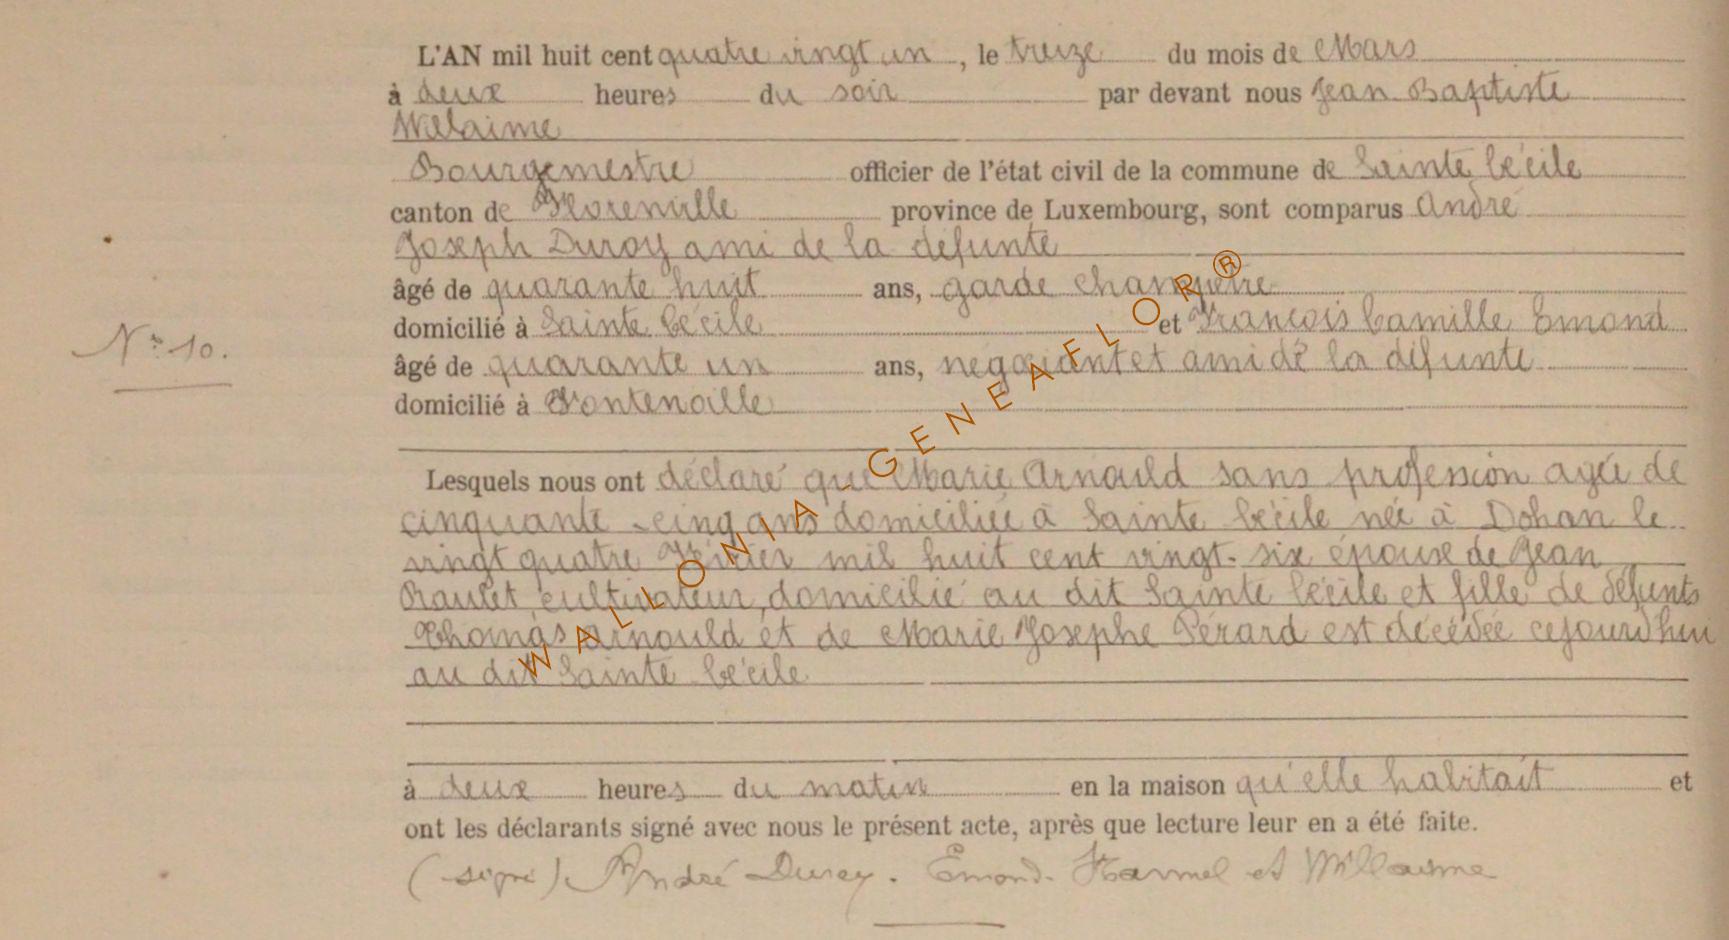 L'AN mil huit cent quatre vingt un, le treize du mois de Mars
à deux heures du soir par devant nous Jean Baptiste
Willaime
Bourgemestre officier de l'état civil de la commune de Sainte Cécile
canton de Florenville province de Luxembourg, sont comparus André
Joseph Duroy ami de la défunte
âgé de quarante huit ans, garde champêtre
domicilié à Sainte Cécile et François Camille Emond
N° 10.
âgé de quarante un ans, négociant et ami de la défunte
domicilié à Fontenoille
Lesquels nous ont déclaré que Marie Arnould sans profession agée de
cinquante-cinq ans domiciliée à Sainte Cécile née à Dohan le
vingt quatre Février mil huit cent vingt-six épouse de Jean
cultivateur, domicilié au dit Sainte Cécile et fille de défunts
Thomas Arnould et de Marie Josephe Pérard est décédée cejourd'hui
au dit Sainte Cécile
à deux heures du matin en la maison qu'elle habitait et
ont les déclarants signé avec nous le présent acte, après que lecture leur en a été faite.
(signé) André Duroy. Emond. et Willaime
WALLONIA-GENEAFLOR®